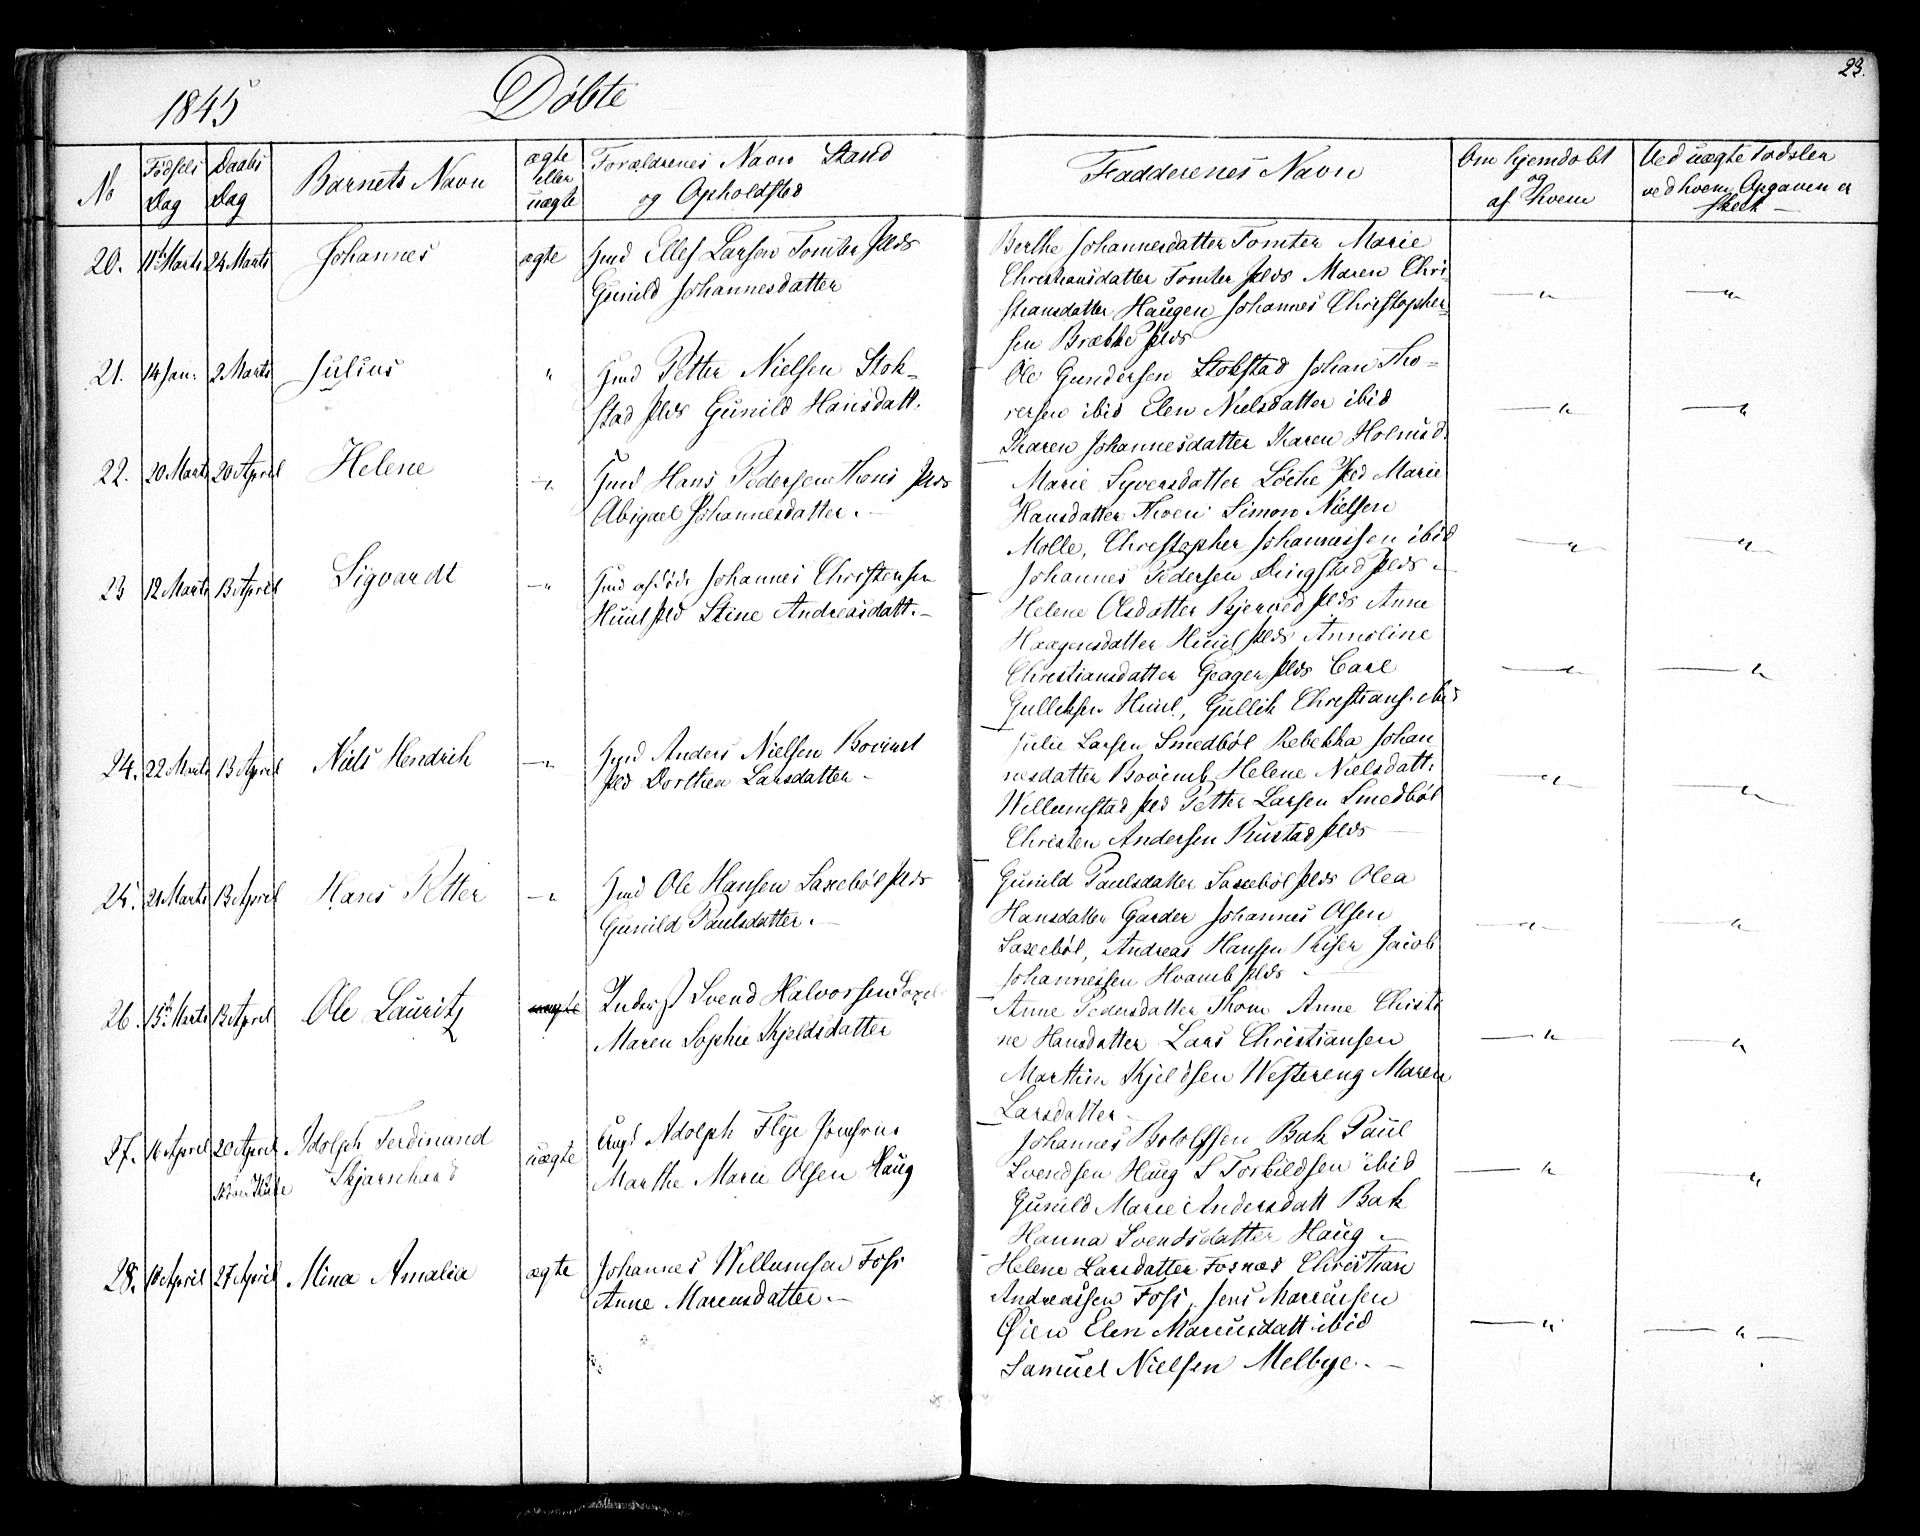 23.
1845 Døbte
No
Fødsels Dag
Daabs Dag
Barnets Navn
ægte eller uægte
Forældrenes Navn Stand
og Opholdstad
Faddernes Navn
Om hjemdøbt
og
af hvem
Ved uægte Fødsler
ved hvem Opgaven er
skeet —
20. 11te Marts 24 Marts Johannes ægte Hmd Ellef Larsen Tomter Plds
Gunild Johannesdatter
Berthe Johannesdatter Tomter Marie
Christiansdatter Tomter Plds Maren Chri-
stiansdatter Haugen Johannes Christopher-
sen Brække Plds
— " — — " —
21. 14 Jan. 2 Marts Julius " Hmd Petter Nielsen Stok-
stad Plds Gunild Hansdatt.
Ole Gundersen Stokstad Johan Tho-
rersen ibid Elen Nielsdatter ibid
Karen Johannesdatter Karen Holmsd.
— " — — " —
22. 20 Marts 20 April Helene — " Hmd Hans Pedersen Thoni Plds
Abigael Johannesdatter. —
Marie Syversdatter Løche Pld Marie
Hansdatter Simon Nielsen
Molle, Christopher Johannessen ibid
— " — — " —
23 12 Marts 13 April Sigvardt — " Hmd afdøde Johannes Christensen
Huul Pld Stine Andreasdatt. —
Johannes Pedersen Plds —
Helene Olsdatter Bjerved Plds Anne
Haagensdatter Huul Plds Annoline
Christiansdatter Plds Carl
Gulliksen Huul, Gullik Christians. ibid
— " — — " —
24. 22 Marts 13 April Niels Hendrik — " Hmd Anders Nielsen
Pld Dorthea Larsdatter —
Julie Larsen Smedbøl Rebekka Johan
nesdatter Helene Nielsdatt.
Willumstad Pld Petter Larsen Smedbøl
Christen Andersen Rustad Plds
— " — — " —
25. 21 Marts 13 April Hans Petter — " Hmd Ole Hansen Saxebøl Plds
Gunild Paulsdatter. —
Gunild Paulsdatter Saxebøl Plds Olea
Hansdatter Garder Johannes Olsen
Saxebøl, Andreas Hansen Riser Jacob
Johannessen Hvamb Plds —
— " — — " —
26. 15de Marts 13 April Ole Lauritz uægte Inderst Svend Halvorsen
Maren Sophie Kjeldsdatter
Anne Pedersdatter Thom Anne Christi
ne Hansdatter Lars Christiansen
Marthin Kjeldsen Westereng Maren
Larsdatter —
— " — — " —
27. 16 April 20 April Adolph Ferdinand uægte Ungk Adolph Flye
Skjarnhard
Marthe Marie Olsen Haug
Johannes Bak Paul
Svendsen Haug S Torkildsen ibid
Gunild Marie Andersdatt Bak
Hanna Svendsdatter Haug —
— " — — " —
28. 10 April 27 April Mina Amalia ægte Johannes Willumsen Foss
Anne Marcusdatter. —
Helene Larsdatter Fosnæs Christian
Andreassen Foss, Jens Marcusen
Øien Elen Marcusdatt ibid
Samuel Nielsen Melbye. —
— " — — " —